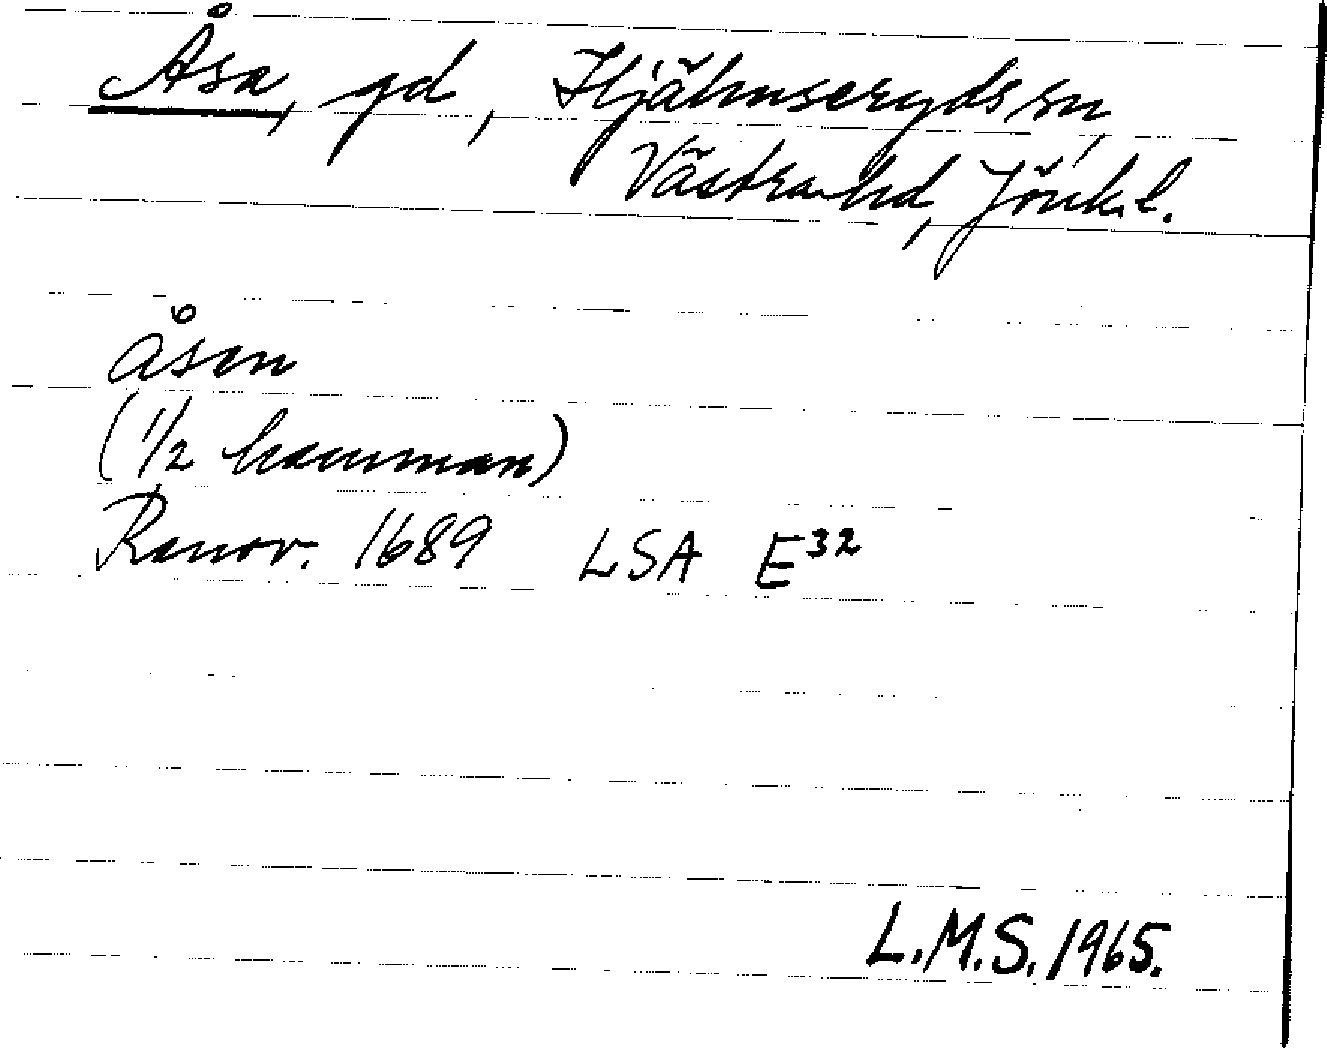 Åsa, gd, Hjälmseryds sn,
Västra hd, Jönk.l.
åsen
(1/2 hemman)
Ranov. 1689 LSA E³²
L.M.S. 1965.